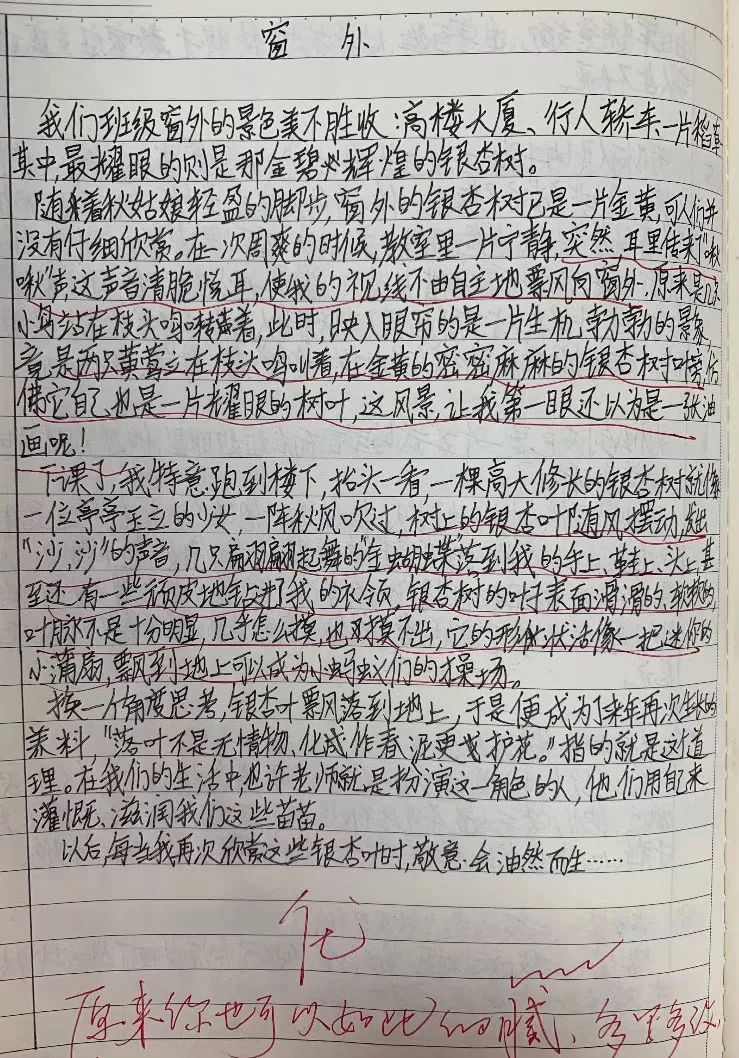 窗外
我们班级窗外的景色美不胜收:高楼大厦、行人轿车、一片稻草
其中,最耀眼的则是那金碧辉煌的银杏树。
随着秋姑娘轻盈的脚步,窗外的银杏树已是一片金黄,可人们并
没有仔细欣赏。在一次周爽的时候,教室里一片宁静,突然,耳里传来了"啾
啾"声,这声音清脆悦耳,使我的视线不由自主地飘向窗外,原来是几只
小鸟站在枝头鸣啭着,此时,映入眼帘的是一片生机勃勃的景象
竟是两只黄莺立在枝头鸣叫着,在金黄的密密麻麻的银杏树叶旁,仿
佛它自己也是一片耀眼的树叶,这风景,让我第一眼还以为是一张油
画呢!
下课了,我特意跑到楼下,抬头一看,一棵高大修长的银杏树就像
一位亭亭玉立的少女,一阵秋风吹过,树上的银杏叶随风摆动,发出
"沙,沙"的声音,几只翩翩起舞的"金蝴蝶"落到我的手上、鞋上、头上,甚
至还有一些顽皮地钻进了我的衣领,银杏树的叶子表面滑滑的、软软的,
叶脉不是十分明显,几乎怎么摸,也摸不出,它的形状活像一把迷你的
小蒲扇,飘到地上可以成为小蚂蚁们的操场。
换一个角度思考,银杏叶飘落到地上,于是便成为了来年再次生长的
养料"落叶不是无情物、化作春泥更护花。"指的就是这个道
理。在我们的生活中,也许老师就是扮演这一角色的人,他们用自己来
灌溉、滋润我们这些苗苗。
以后,每当我再次欣赏这些银杏叶时,敬意会油然而生……
优
原来你也可以如此细腻、多坚多改